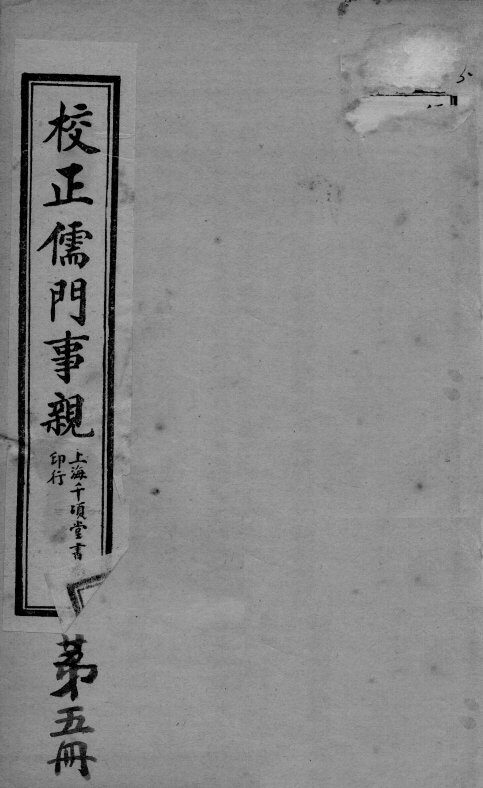 校正儒門事親
上海千頃堂書
印行
第五冊